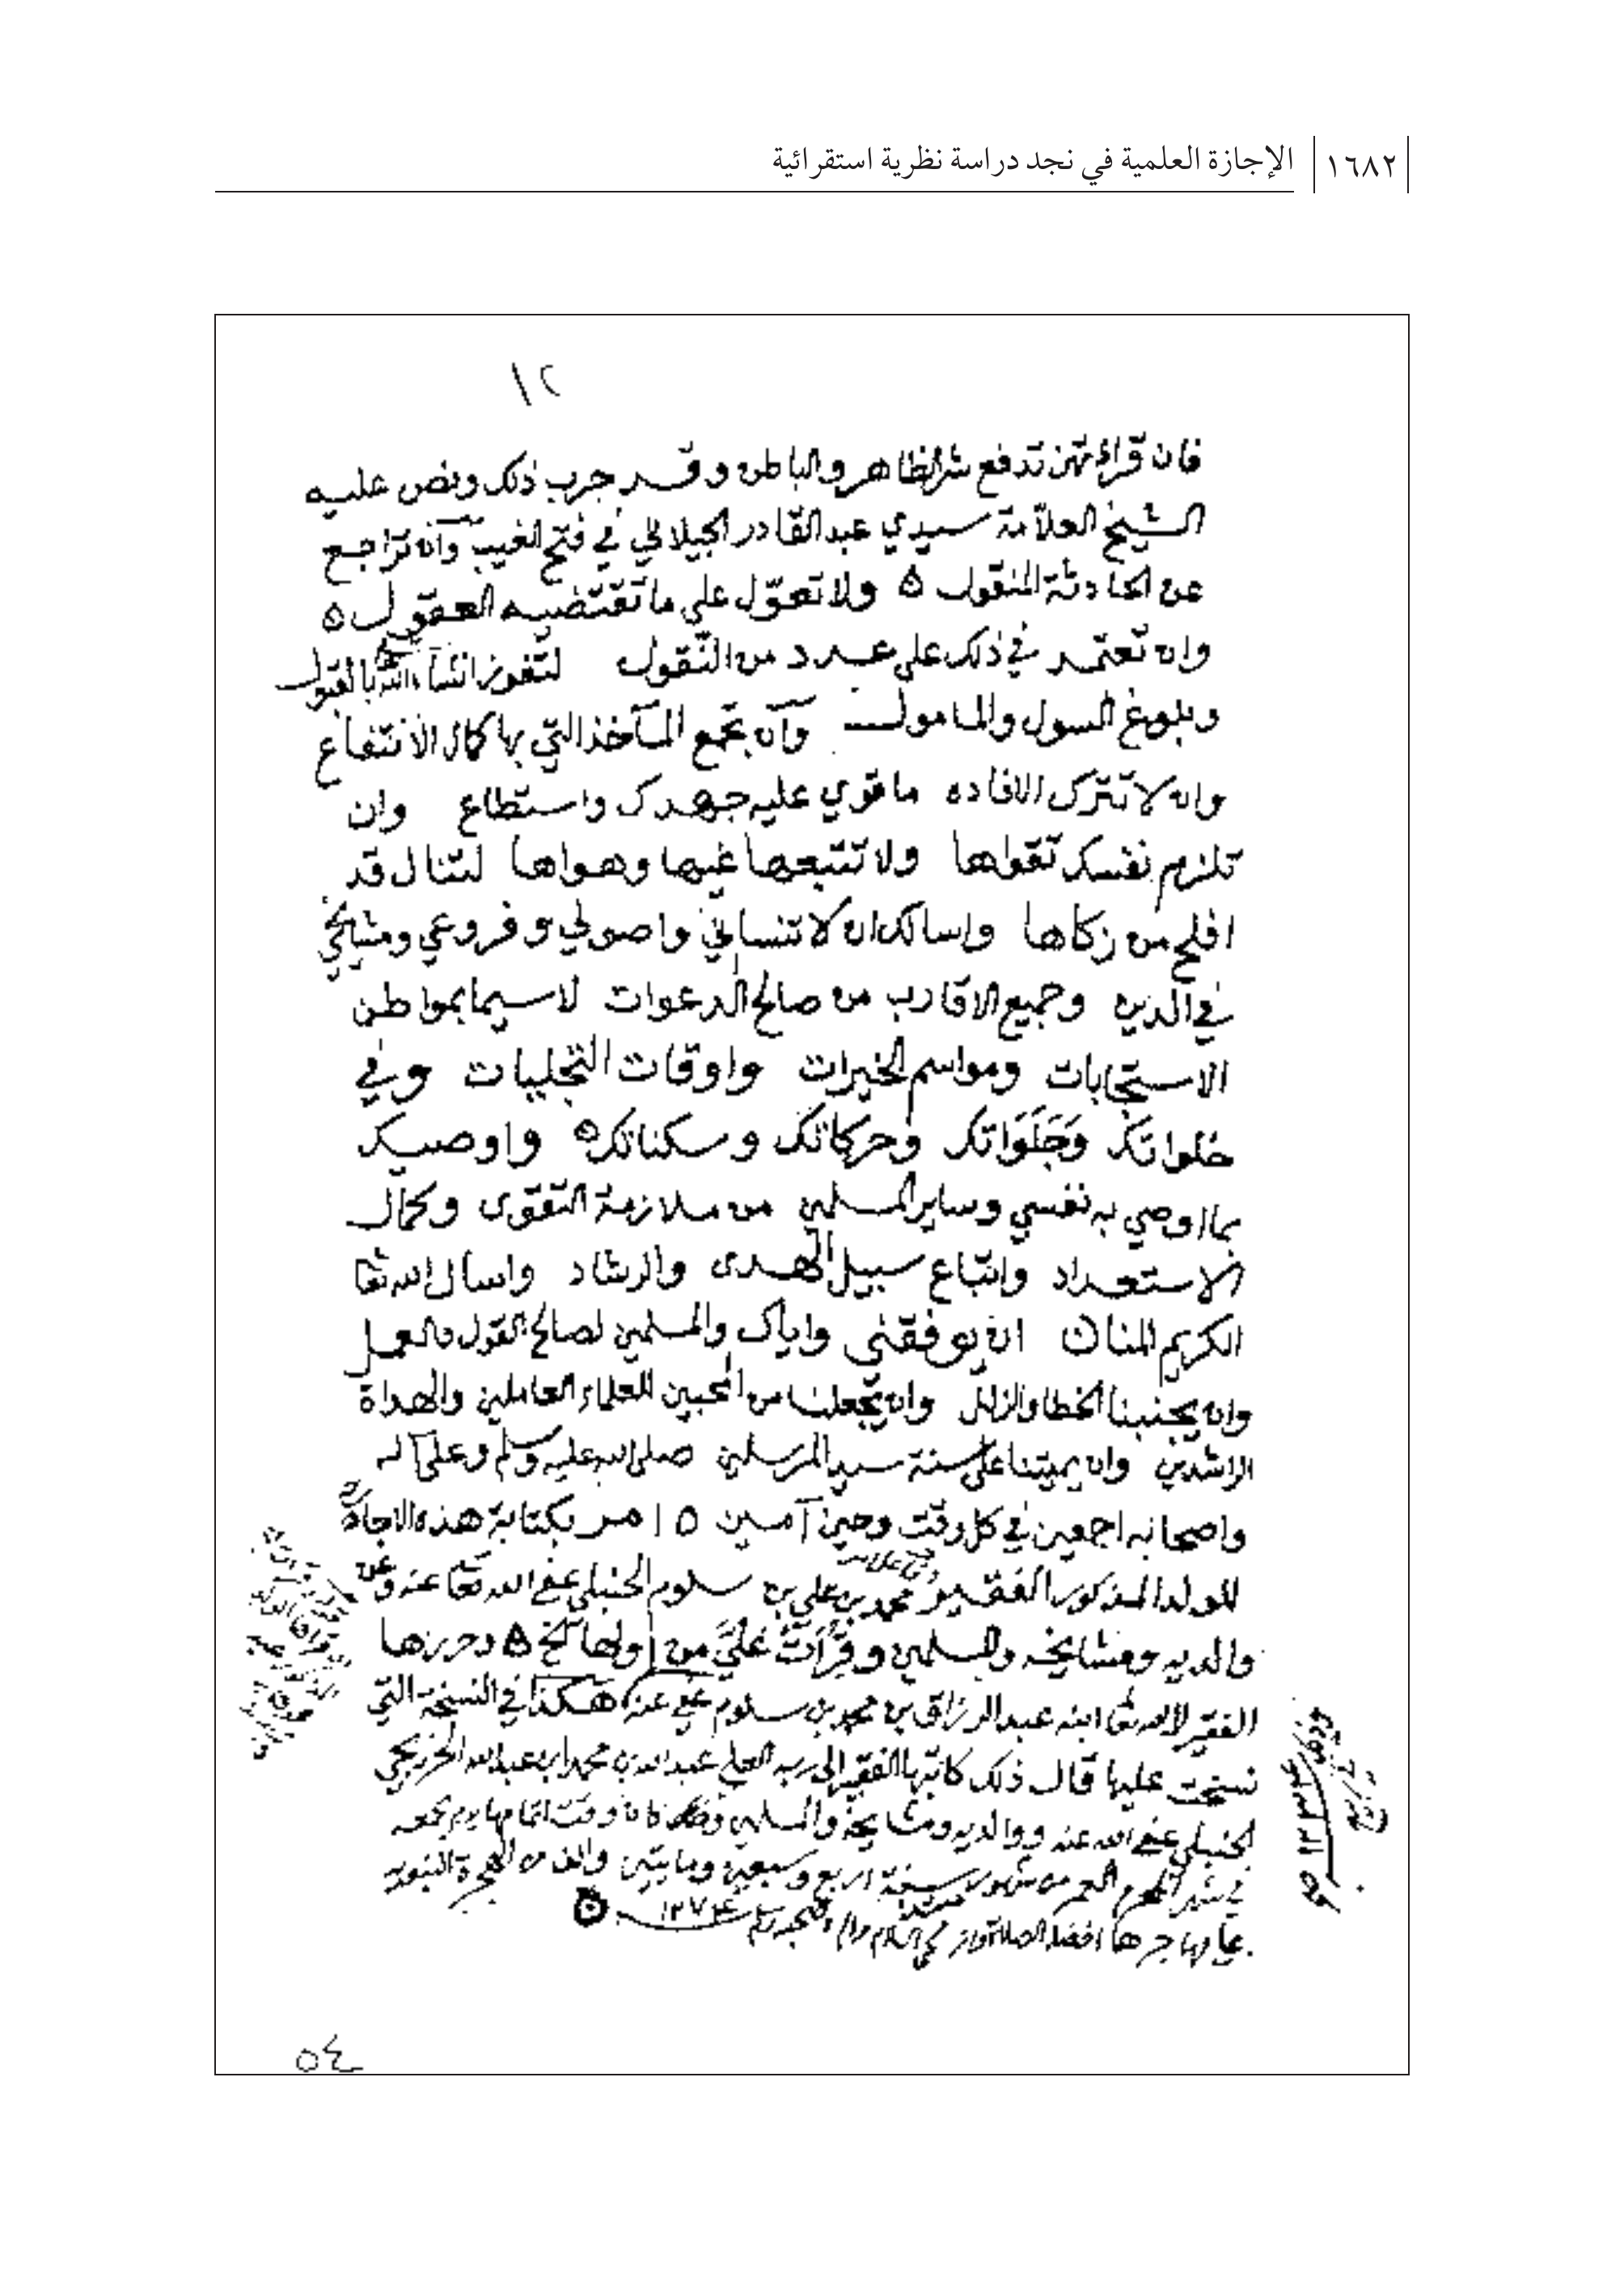 ١٦٨٢
الإجازة العلمية في نجد دراسة نظرية استقرائية
١٢
فان قراءتهن تدفع شر الظاهر والباطن وقد جرب ذلك ونص عليه
الشيخ العلامة سيدي عبد القادر الجيلاني في فتح الغيب وان تراجع
عن الحادثة المنقول ٥ ولا تعوّل على ما تقتضيه العقول ٥
وان تعتمد في ذلك على عدد من النقول لتفوز انشاء الله بالقبول
وبلوغ السول والمامول وآن تجمع المآخذ التي بها كمال الانتفاع
وان لا تترك الافاده ما قوي عليه جهدك واستطاع وان
تلزم نفسك تقواها ولا تتبعها غيها وهواها لتنال قد
افلح من زكاها واسالك ان لا تنساني واصولي وفروعي ومشايخي
في الدين وجميع الاقارب من صالح الدعوات لا سيما بمواطن
الاستجابات ومواسم الخيرات واوقات التجليات وفي
خلواتك وَجَلَوَاتك وحركاتك وسكناتك ٥ واوصيك
بما اوصي به نفسي وساير المسلمين من ملازمة التقوى وكمال
الاستعداد واتباع سبيل الهدى والرشاد واسال الله تعا
الكريم المنان ان يوفقني واياك والمسلمين لصالح القول والعمل
وان يجنبنا الخطا والزلل وان يجعلنا من المحبين للعلماء العاملين والهداة
الراشدين وان يميتنا على سنة سيد المرسلين صلى الله عليه وسلم وعلى آله
واصحابه اجمعين في كل وقت وحين آمين ٥ امر بكتابة هذه الاجازة
للولد المذكور الفقير محمد بن علي بن سلوم الحنبلي عفى الله تعا عنه وعن
والديه ومشايخه والمسلمين وقرأت عليَّ من اولها ٥ وحررها
الفقير لله تعا ابنه عبد الرزاق بن محمد بن سلوم عفي عنه هكذا في النسخة التي
نسخت عليها قال ذلك كاتبها الفقير الى ربه العلي عبد الله بن محمد ابن عبد الله
الحنبلي عفى الله عنه ووالديه ومشايخه والمسلمين وكان وقت اتمامها يوم جمعه
في شهر المحرم من شهور سنة اربع وسبعين ومايتين والف من الهجرة النبويه
على مهاجرها افضل الصلاة ١٢٧٤
٥٤